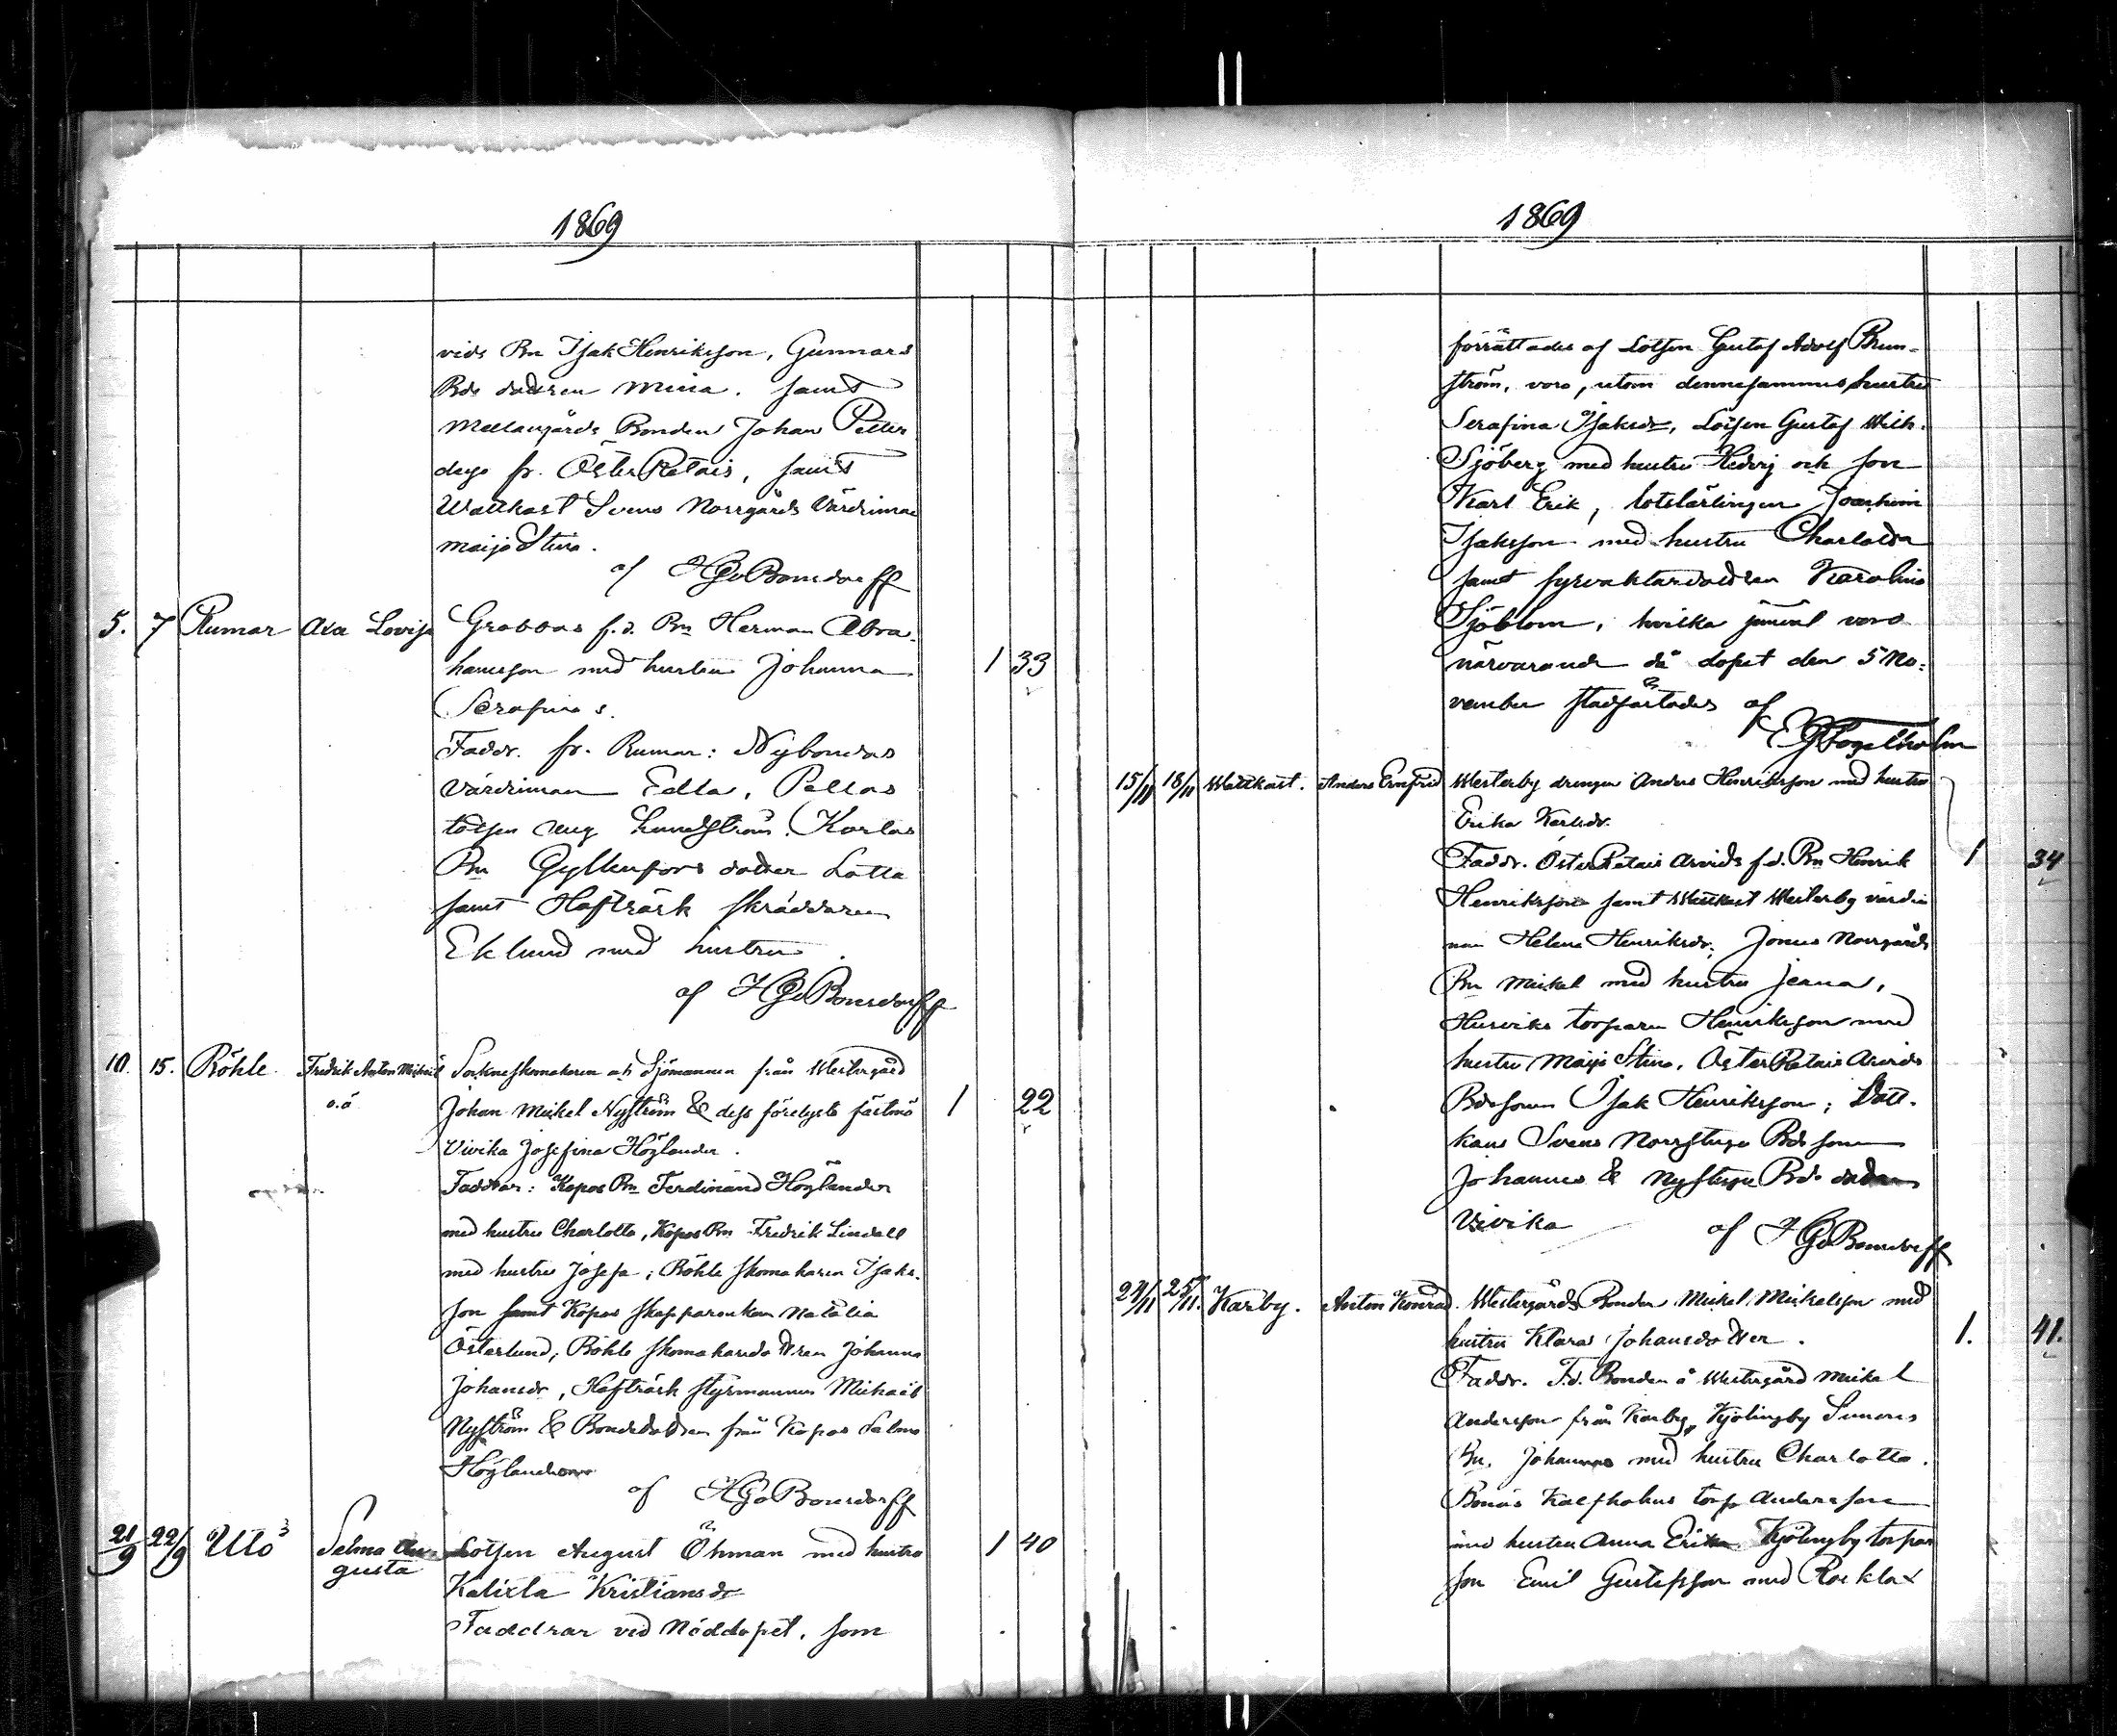 1869
vids Bn Isak Henriksson, Gunnars
Bds dottren Mina. samt
Mellangårds Bonden Johan Petter
fr. Öster Retais, samt
Wattkast Svens Norrgårds Värdinnan
Maija Stina.
af HGvBonsdorff
5. 7 Rumar Axa Lovisa Grabbas f.d. Bn Herman Abra-
hamsson med hustru Johanna 1 33
Serafina s.
Faddr. fr. Rumar: Nybondas
värdinnan Edla, Pellas
lotsen Aug Lundström. Karlas
Bn Gyllenfors dotter Lotta
samt Hafträsk skräddaren
Eklund med hustru.
af HGvBonsdorff
10. 15. Röhle Fredrik Anton Mickael Socknesskomakaren och Sjömannen från Westergård
o.ä Johan Mickel Nyström & dess förelyste fästmö 1 22
Vivika Josefina Höglander.
Faddrar: Kopos Bn Ferdinand Höglander
med hustru Charlotta, Kopos Bn Fredrik Lindell
med hustru Josefa; Röhle skomakaren Isaks-
son samt Kopos skepparenkan Natalia
Österlund; Röhle skomakaredottren Johanna
Johansdr, Hafträsk styrmannen Mickael
Nyström & Bondedottren från Kopos Salma
Höglander
af HGvBonsdorff
21/9 22/9 Utö Selma Au- Lotsen August Öhman med hustru 1 40
gusta Kalixta Kristiansdr
Faddrar ved Nöddopet, som
1869
förrättades af Lotsen Gustaf Adolf Brun-
ström, voro, utom dennesammes hustru
Serafina Isaksdr, Lotsen Gustaf Wilh.
Sjöberg med hustru Hedvig och son
Karl Erik, lotslärlingen Joachim
Isaksson med hustru Charlotta
samt fyrvaktardottren Karolina
Sjöblom, hvilka jämväl voro
närvarande då dopet den 5 No-
vember stadfästades af
EGFogelholm
15/11 18/11 Wattkast. Anders Ernfrid Westerby drengen Anders Henriksson med hustru
Erika Karlsdr.
Faddr. Öster Retais Arvids f.d. Bn Henrik 1 34
Henriksson samt Wattkast Westerby värdin
nan Helena Henriksdr; Jonus Norrgårds
Bn Mickel med hustru Jeana,
Husviks torparen Henriksson med
hustru Maija Stina, Öster Retais Arvids
Bdesonen Isak Henriksson; Watt-
kast Svens Norrstuga Bds son
Johannes & Nystuga Bds dottren
Vivika af HGvBonsdorff
24/11 25/11. Karby. Anton Konrad. Westergårds Bonden Mickel Mickelsson med
hustru Klara Johansdotter. 1. 41.
Faddr. F.d. Bonden å Westergård Mickel
Andersson från Karby, Kjölingby Simons
Bn. Johannes med hustru Charlotta.
Bonäs Kalfholms torp Andersson
med hustru Anna Erika Kjölingby torpar
son Emil Gustafsson med Rocklax